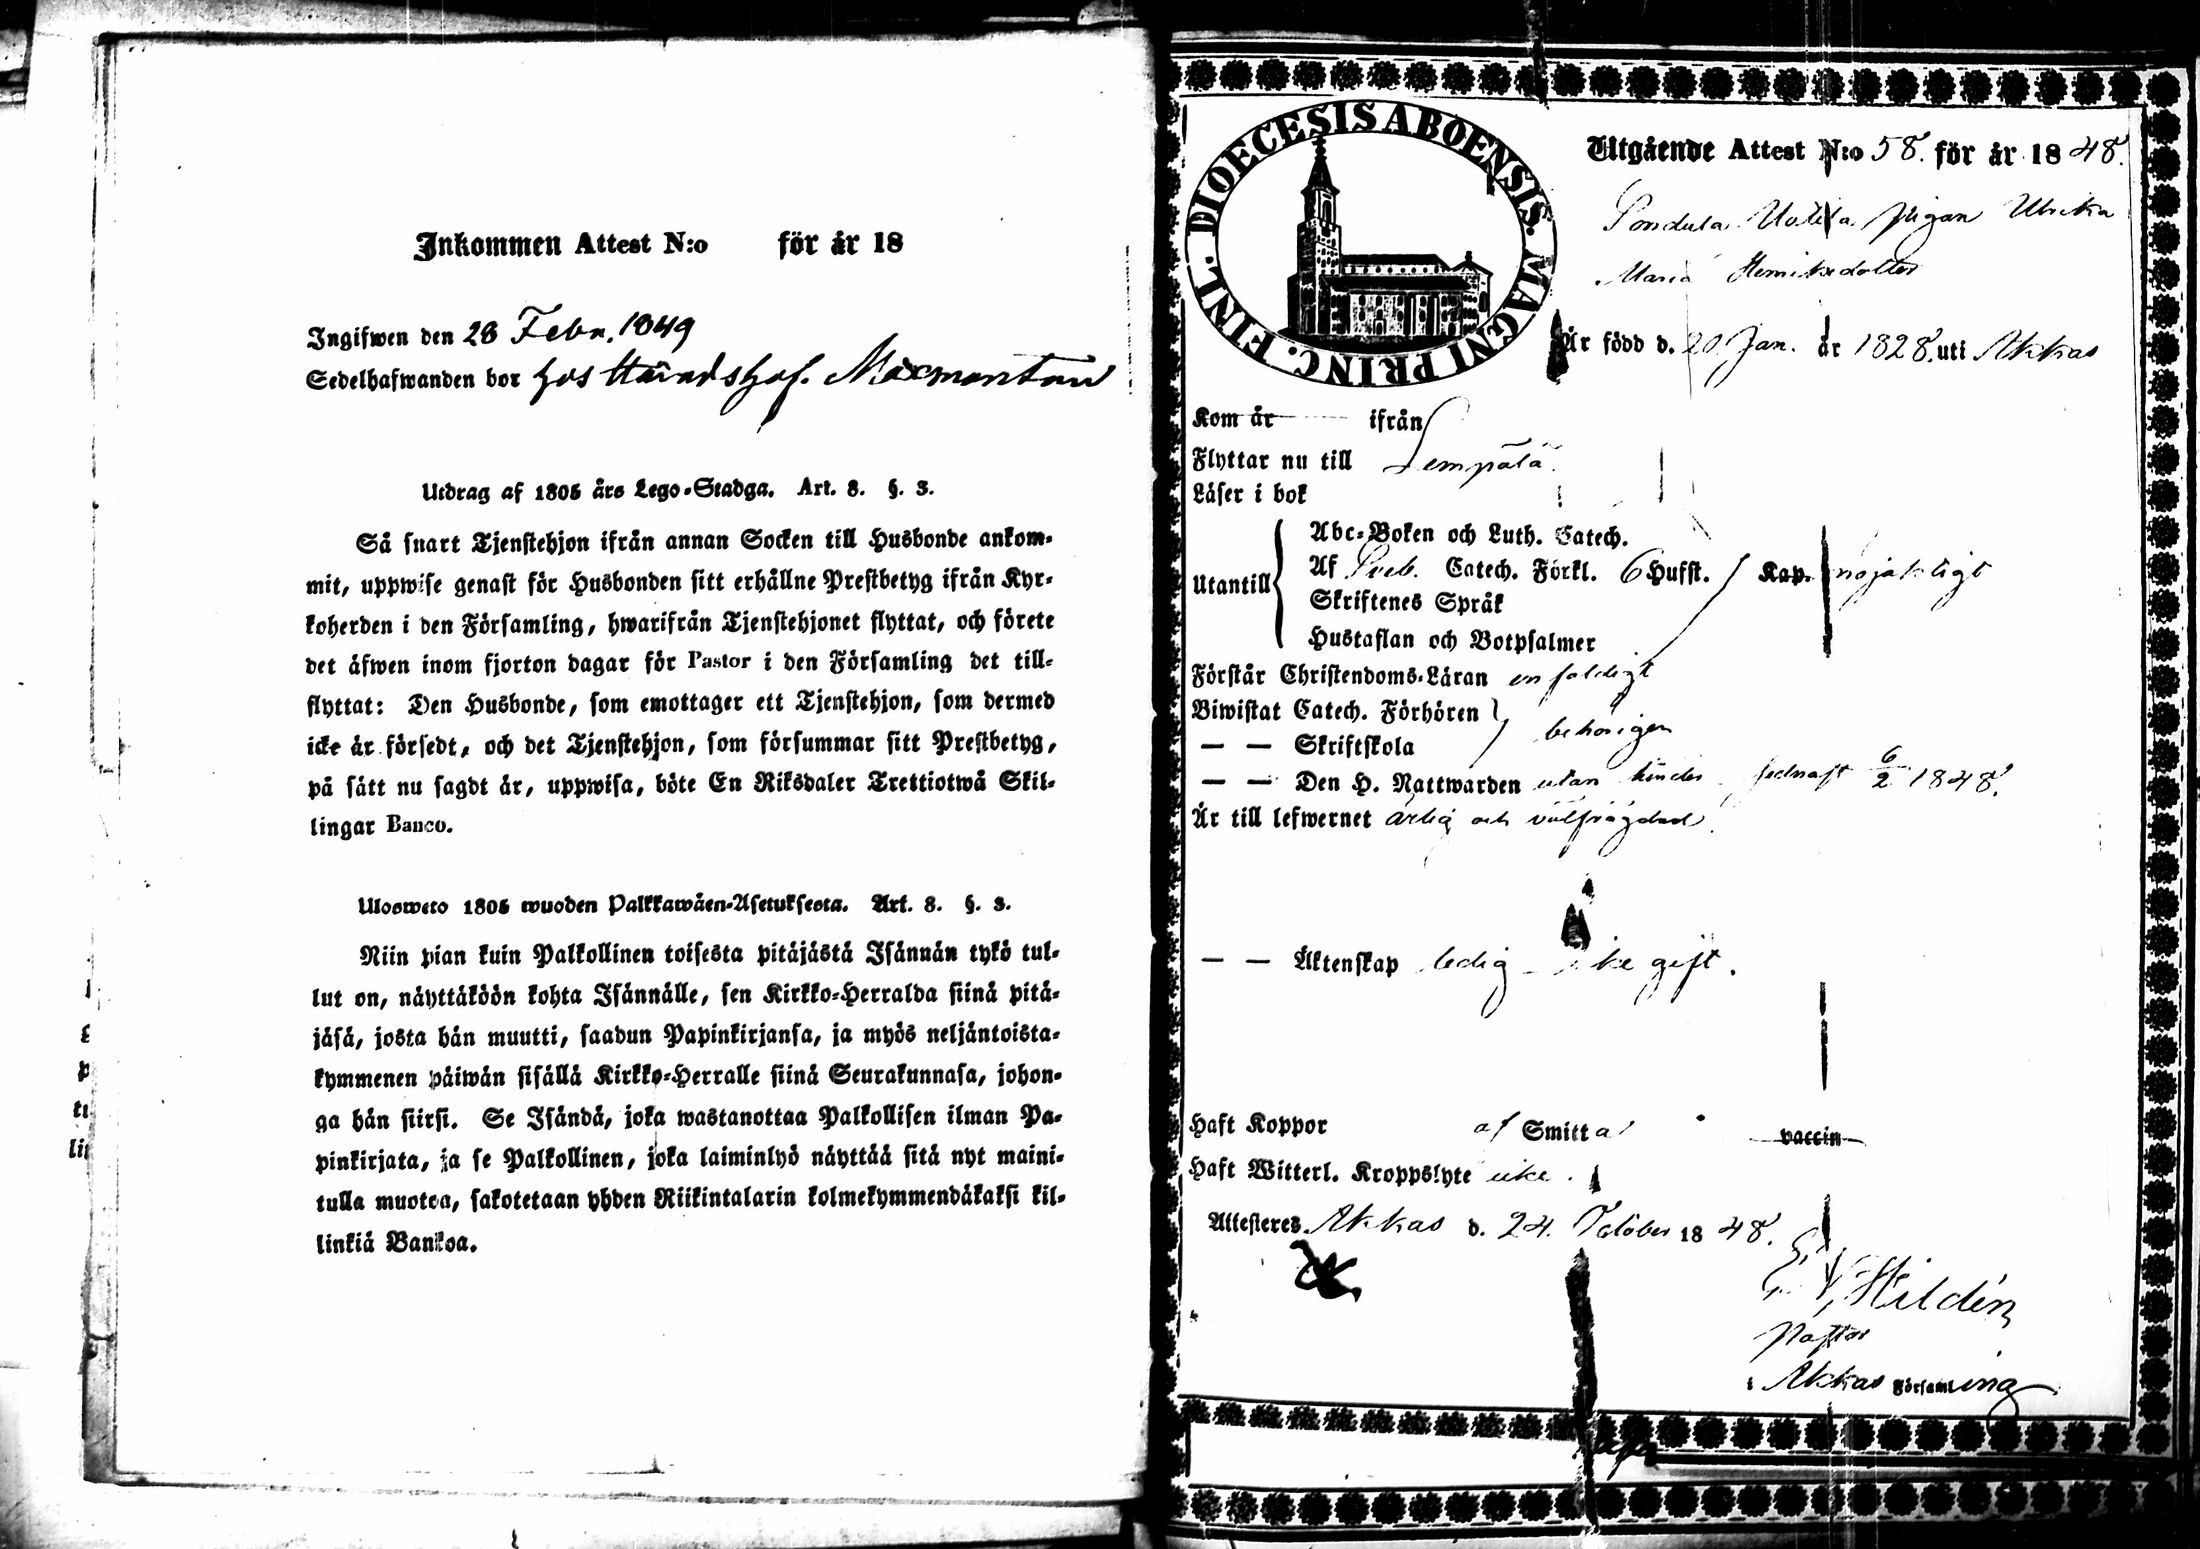 Inkommen Attest N:o för år 18
Ingifwen den 28 Febr. 1849
Sedelhafwanden bor hos Häradshöf. Maxmontan
Utdrag af 1805 års Lego-Stadga. Art. 8. §. 3.
Så snart Tjenstehjon ifrån annan Socken till Husbonde ankom-
mit, uppwise genast för Husbonden sitt erhållne Prestbetyg ifrån Kyr-
koherden i den Församling, hwarifrån Tjenstehjonet flyttat, och förete
det äfwen inom fjorton dagar för Pastor i den Församling det till-
flyttat: Den Husbonde, som emottager ett Tjenstehjon, som dermed
icke är försedt, och det Tjenstehjon, som försummar sitt Prestbetyg,
på sätt nu sagdt är, uppwisa, böte En Riksdaler Trettiotwå Skil-
lingar Banco.
Ulosweto 1805 wuoden Palkkawäen-Asetuksesta. Art. 8. §. 3.
Niin pian kuin Palkollinen toisesta pitäjästä Isännän tykö tul-
lut on, näyttäköön kohta Isännälle, sen Kirkko-Herralda siinä pitä-
jäsä, josta hän muutti, saadun Papinkirjansa, ja myös neljäntoista-
kymmenen päiwän sisällä Kirkko-Herralle siinä Seurakunnasa, johon-
ga hän siirsi. Se Isändä, joka wastanottaa Palkollisen ilman Pa-
pinkirjata, ja se Palkollinen, joka laiminlyö näyttää sitä nyt maini-
tulla muotoa, sakotetaan yhden Riikintalarin kolmekymmendäkaksi kil-
linkiä Bankoa.
DIOECESIS ABOENSIS. MAGNI PRINC. FINL.
Utgående Attest N:o 58. för år 1848.
Uotila pigan Ulrika
Maria Henriksdotter
Är född d. 20 Jan. år 1828. uti Akkas
Kom år ifrån
Flyttar nu till Lempälä
Läser i bok
Utantill
Abc-Boken och Luth. Catech.
Af Sveb. Catech. Förkl. 6 Hufst. Kap. nöjaktigt
Skriftenes Språk
Hustaflan och Botpsalmer
Förstår Christendoms-Läran enfaldigt
Biwistat Catech. Förhören
— — Skriftskola behörigen
— — Den H. Nattwarden utan hinder sednast 6/2 1848.
Är till lefwernet ärlig och välfrägdad
— — Äktenskap ledig – icke gift.
Haft Koppor af Smitta vaccin
Haft Witterl. Kroppslyte icke.
Attesteres Akkas d. 24. October 1848.
Hildén
Pastor
i Akkas Församling